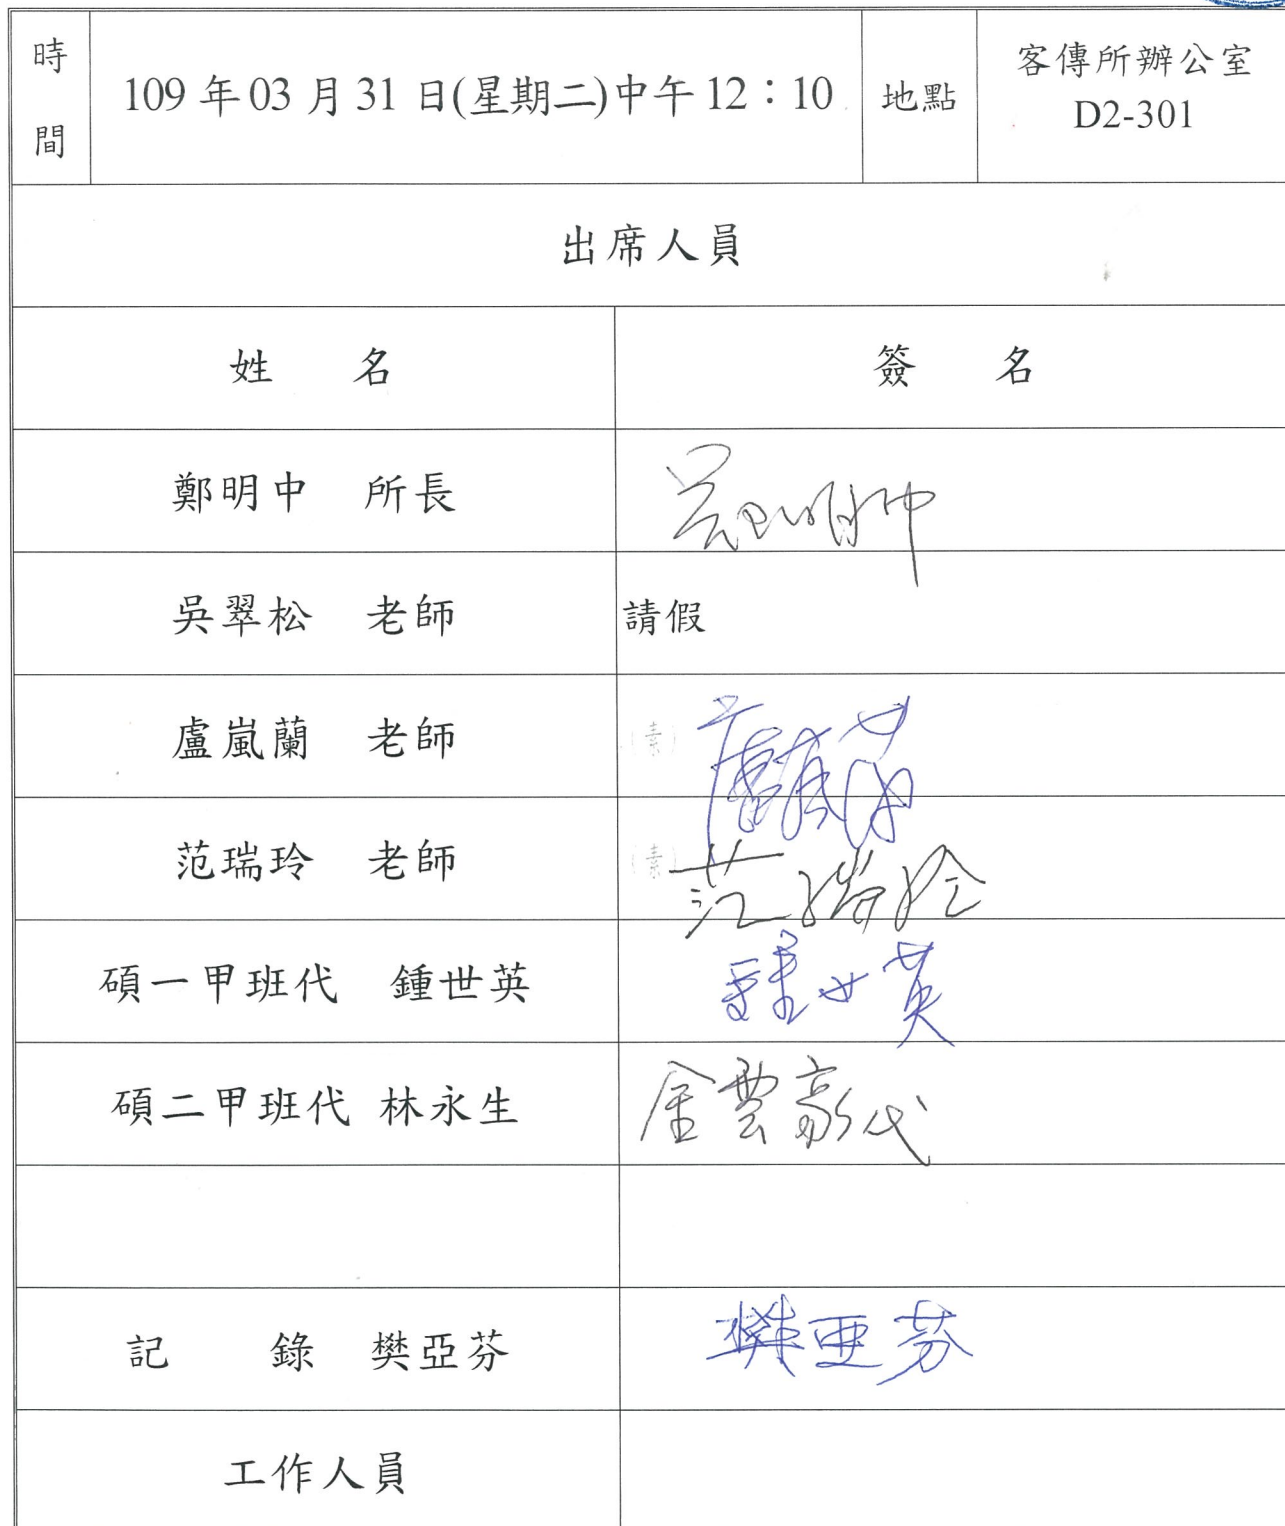 時間 109 年 03 月 31 日(星期二)中午 12：10 地點 客傳所辦公室
D2-301
出席人員
姓 名 簽 名
鄭明中 所長 鄭明中
吳翠松 老師 請假
盧嵐蘭 老師 (素) 盧嵐蘭
范瑞玲 老師 (素) 范瑞玲
碩一甲班代 鍾世英 鍾世英
碩二甲班代 林永生 金雲豪代
記 錄 樊亞芬 樊亞芬
工作人員